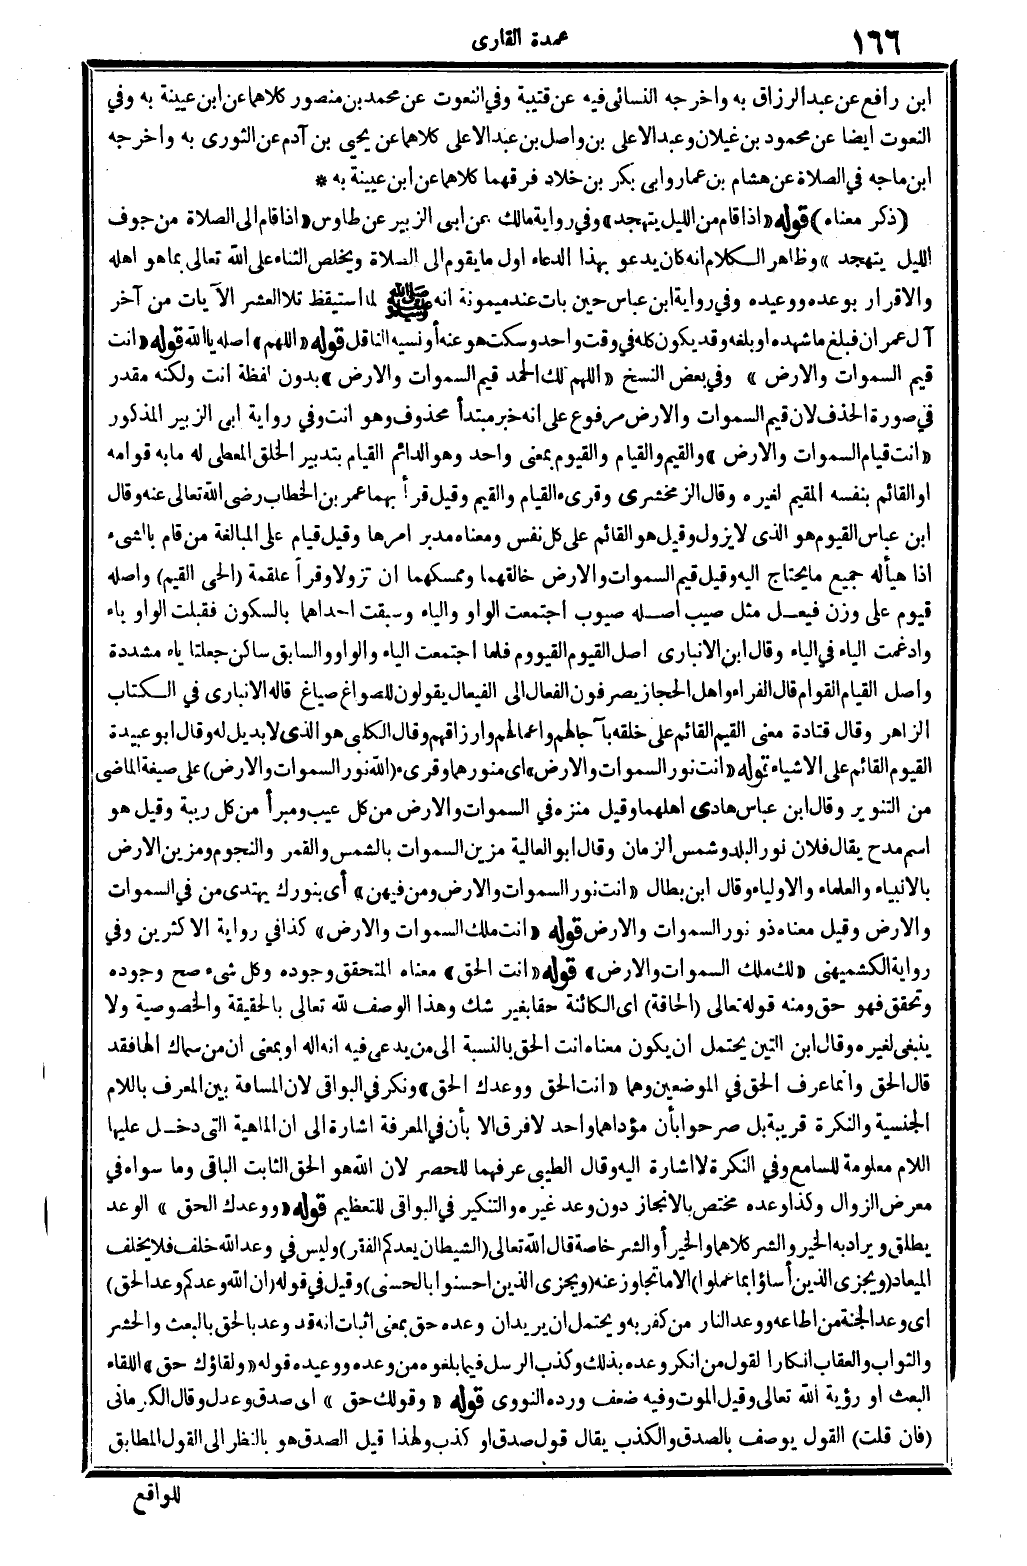 ١٦٦
عمدة القارى
ابن رافع عن عبد الرزاق به واخرجه النسائى فيه عن قتيبة وفى النعوت عن محمد بن منصور كلاهما عن ابن عيينة به وفى
النعوت ايضا عن محمود بن غيلان وعبد الاعلى بن واصل بن عبد الاعلى كلاهما عن يحيى بن آدم عن الثورى به واخرجه
ابن ماجه فى الصلاة عن هشام بن عمار وابى بكر بن خلاد فرقهما كلاهما عن ابن عيينة به *
(ذكر معناه) قوله «اذا قام من الليل يتهجد» وفى رواية مالك عن ابى الزبير عن طاوس «اذا قام الى الصلاة من جوف
الليل يتهجد» وظاهر الكلام انه كان يدعو بهذا الدعاء اول ما يقوم الى الصلاة ويخلص الثناء على الله تعالى بما هو اهله
والاقرار بوعده ووعيده وفى رواية ابن عباس حين بات عند ميمونة انه ﷺ لما استيقظ تلا العشر الآيات من آخر
آل عمران فبلغ ما شهده او بلغه وقد يكون كله فى وقت واحد وسكت هو عنه أو نسيه الناقل قوله «اللهم» اصله ياالله قوله «انت
قيم السموات والارض» وفى بعض النسخ «اللهم لك الحمد قيم السموات والارض» بدون لفظة انت ولكنه مقدر
فى صورة الحذف لان قيم السموات والارض مرفوع على انه خبر مبتدأ محذوف وهو انت وفى رواية ابى الزبير المذكور
«انت قيام السموات والارض» والقيم والقيام والقيوم بمعنى واحد وهو الدائم القيام بتدبير الخلق المعطى له ما به قوامه
او القائم بنفسه المقيم لغيره وقال الزمخشرى وقرىء القيام والقيم وقيل قرأ بهما عمر بن الخطاب رضى الله تعالى عنه وقال
ابن عباس القيوم هو الذى لا يزول وقيل هو القائم على كل نفس ومعناه مدبر امرها وقيل قيام على المبالغة من قام بالشىء
اذا هيأ له جميع ما يحتاج اليه وقيل قيم السموات والارض خالقهما وممسكهما ان تزولا وقرأ علقمة (الحى القيم) واصله
قيوم على وزن فيعل مثل صيب اصله صيوب اجتمعت الواو والياء وسبقت احداهما بالسكون فقلبت الواو ياء
وادغمت الياء فى الياء وقال ابن الانبارى اصل القيوم القيووم فلما اجتمعت الياء والواو والسابق ساكن جعلتا ياء مشددة
واصل القيام القوام قال الفراء واهل الحجاز يصرفون الفعال الى الفيعال يقولون للصواغ صياغ قاله الانبارى فى الكتاب
الزاهر وقال قتادة معنى القيم القائم على خلقه بآجالهم واعمالهم وارزاقهم وقال الكلبى هو الذى لا بديل له وقال ابو عبيدة
القيوم القائم على الاشياء قوله «انت نور السموات والارض» اى منورهما وقرىء (الله نور السموات والارض) على صيغة الماضى
من التنوير وقال ابن عباس هادى اهلهما وقيل منزه فى السموات والارض من كل عيب ومبرأ من كل ريبة وقيل هو
اسم مدح يقال فلان نور البلد وشمس الزمان وقال ابو العالية مزين السموات بالشمس والقمر والنجوم ومزين الارض
بالانبياء والعلماء والاولياء وقال ابن بطال «انت نور السموات والارض ومن فيهن» أى بنورك يهتدى من فى السموات
والارض وقيل معناه ذو نور السموات والارض قوله «انت ملك السموات والارض» كذا فى رواية الاكثرين وفى
رواية الكشميهنى «لك ملك السموات والارض» قوله «انت الحق» معناه المتحقق وجوده وكل شىء صح وجوده
وتحقق فهو حق ومنه قوله تعالى (الحاقة) اى الكائنة حقا بغير شك وهذا الوصف لله تعالى بالحقيقة والخصوصية ولا
ينبغى لغيره وقال ابن التين يحتمل ان يكون معناه انت الحق بالنسبة الى من يدعى فيه انه اله او بمعنى ان من سماك الها فقد
قال الحق وانما عرف الحق فى الموضعين وهما «انت الحق ووعدك الحق» ونكر فى البواقى لان المسافة بين المعرف باللام
الجنسية والنكرة قريبة بل صرحوا بأن مؤداهما واحد لا فرق الا بأن فى المعرفة اشارة الى ان الماهية التى دخل عليها
اللام معلومة للسامع وفى النكرة لا اشارة اليه وقال الطيبى عرفهما للحصر لان الله هو الحق الثابت الباقى وما سواه فى
معرض الزوال وكذا وعده مختص بالانجاز دون وعد غيره والتنكير فى البواقى للتعظيم قوله «ووعدك الحق» الوعد
يطلق ويراد به الخير والشر كلاهما والخير أو الشر خاصة قال الله تعالى (الشيطان يعدكم الفقر) وليس فى وعد الله خلف فلا يخلف
الميعاد (ويجزى الذين أساؤا بما عملوا) الا ما تجاوز عنه (ويجزى الذين احسنوا بالحسنى) وقيل فى قوله (ان الله وعدكم وعد الحق)
اى وعد الجنة من اطاعه ووعد النار من كفر به ويحتمل ان يريد ان وعده حق بمعنى اثبات انه قد وعد بالحق بالبعث والحشر
والثواب والعقاب انكارا لقول من انكر وعده بذلك وكذب الرسل فيما بلغوه من وعده ووعيده قوله «ولقاؤك حق» اللقاء
البعث او رؤية الله تعالى وقيل الموت وفيه ضعف ورده النووى قوله «وقولك حق» اى صدق وعدل وقال الكرمانى
(فان قلت) القول يوصف بالصدق والكذب يقال قول صدق او كذب ولهذا قيل الصدق هو بالنظر الى القول المطابق
للواقع